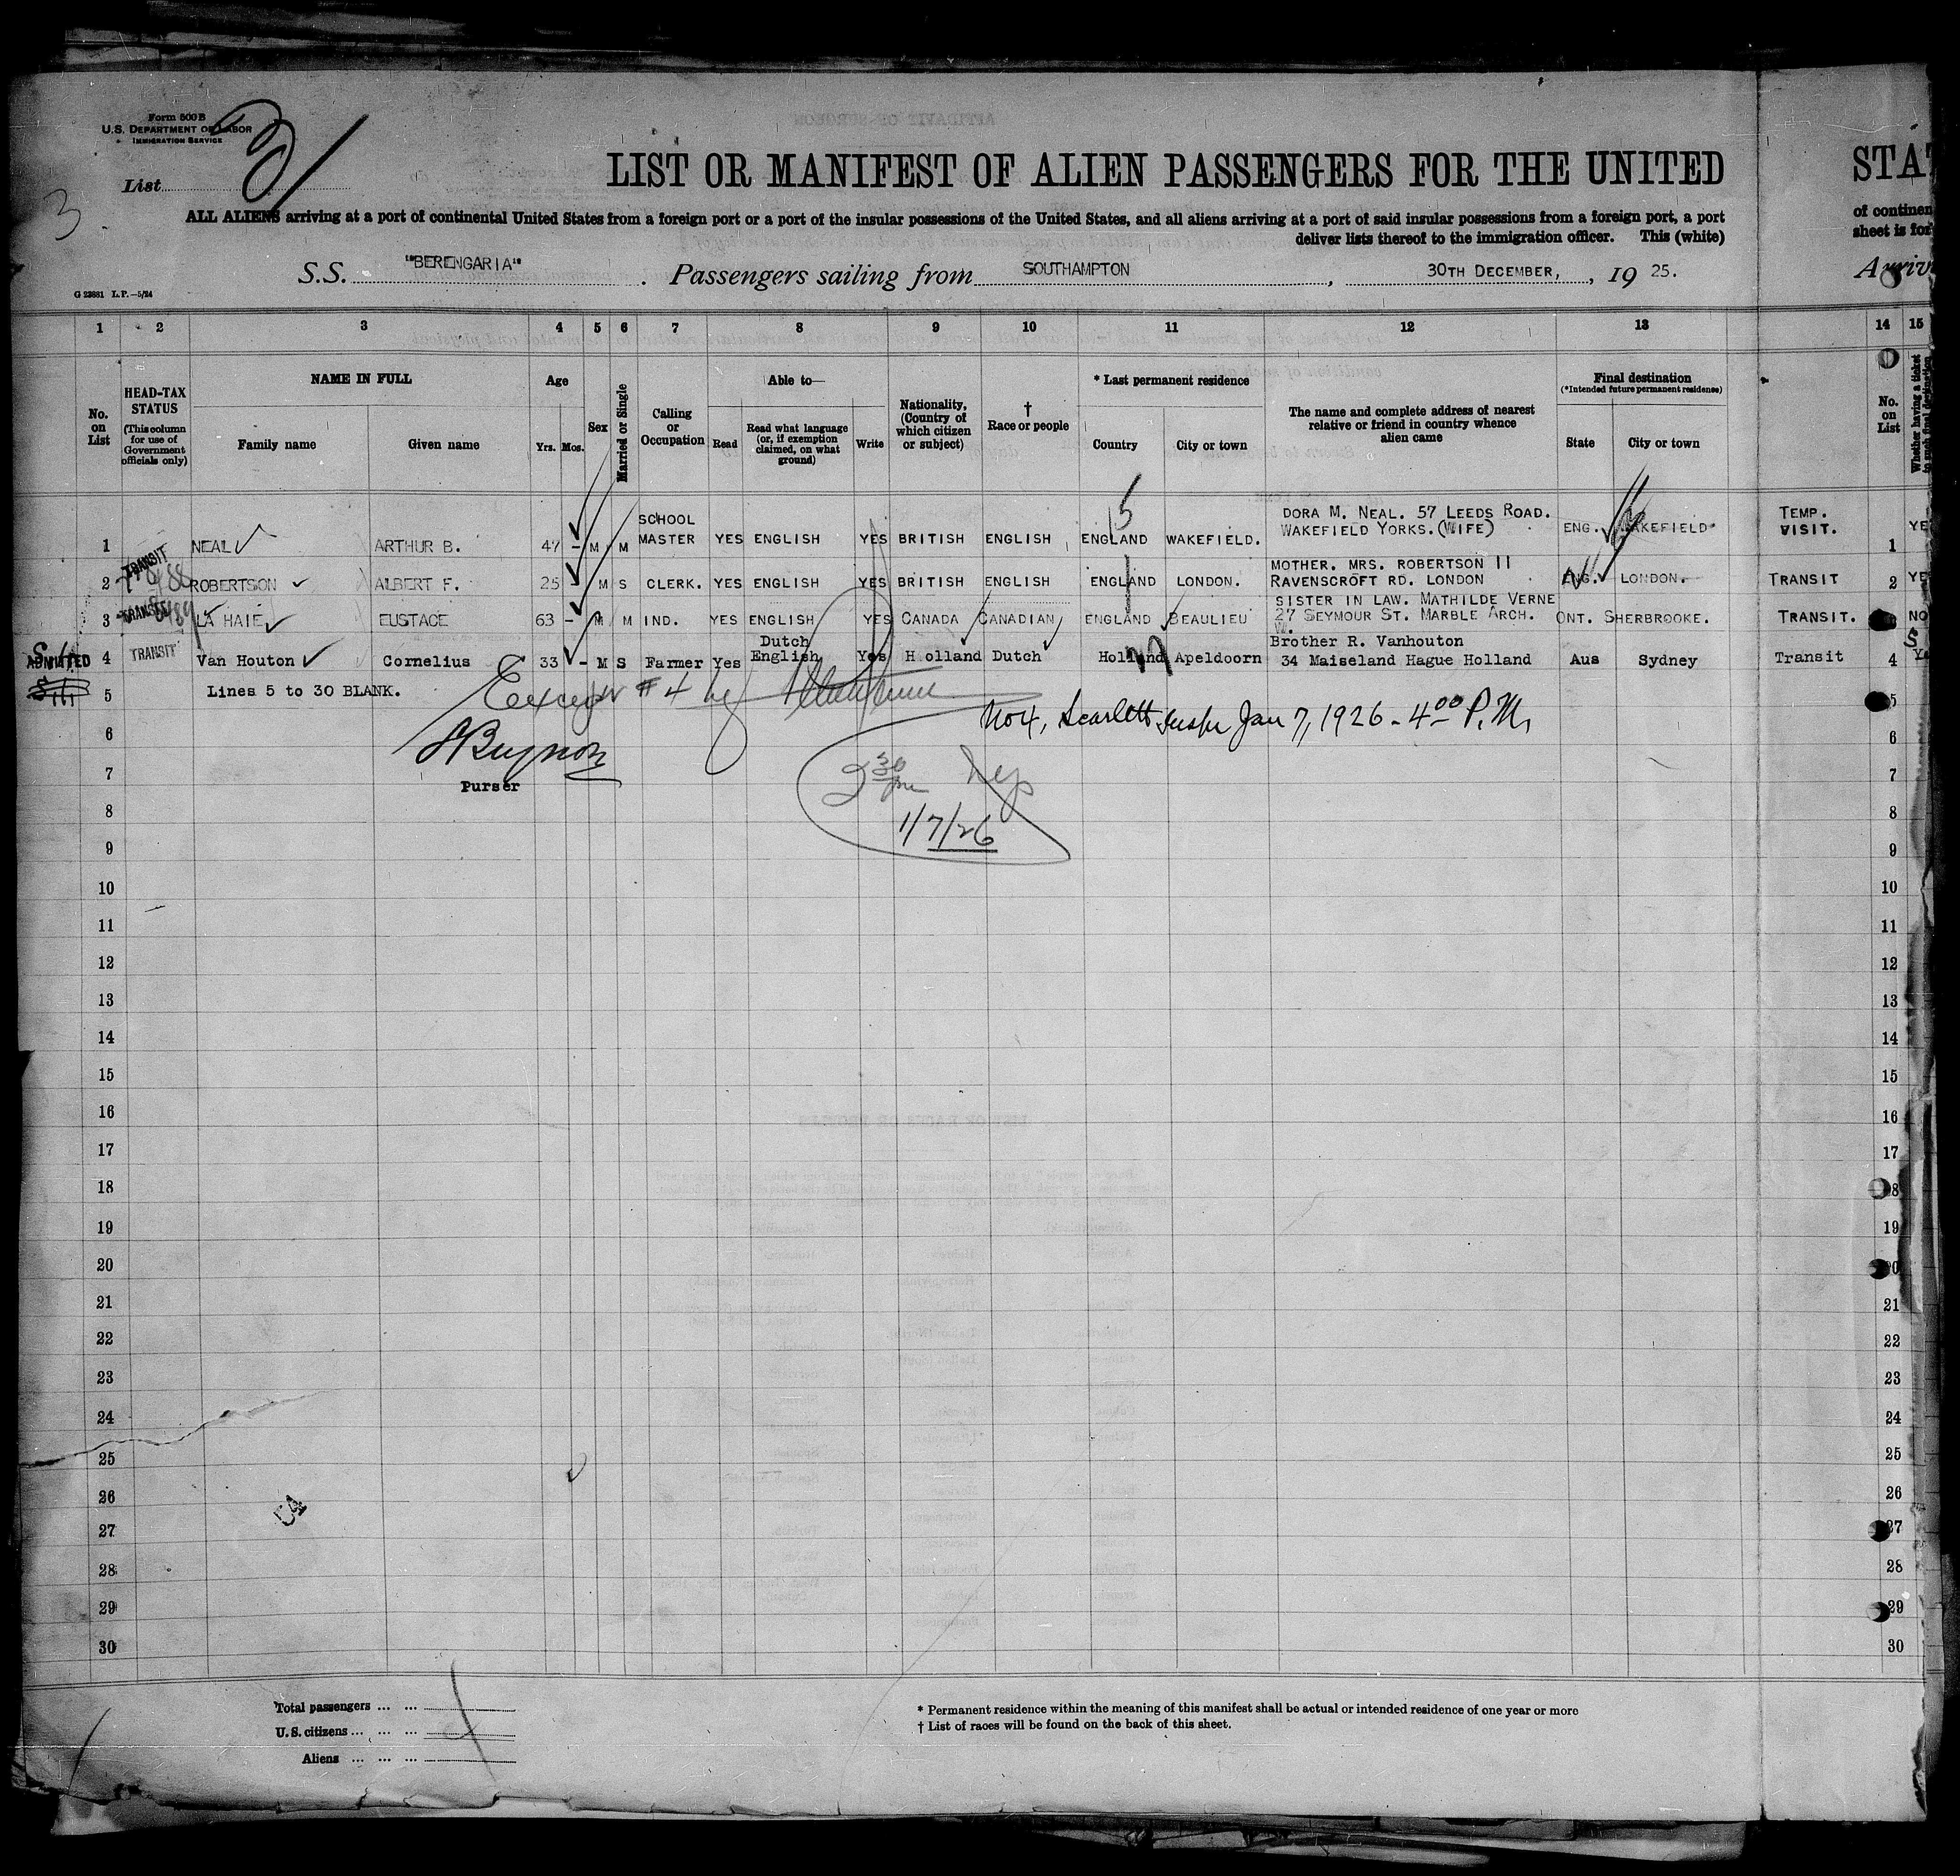 Form 500 B
U.S. DEPARTMENT OF LABOR
IMMIGRATION SERVICE
List
3
LIST OR MANIFEST OF ALIEN PASSENGERS FOR THE UNITED
STAT
ALL ALIENS arriving at a port of continental United States from a foreign port or a port of the insular possessions of the United States, and all aliens arriving at a port of said insular possessions from a foreign port, a port
of continen
deliver lists thereof to the immigration officer. This (white)
sheet is for
S.S. "BERENGARIA" . Passengers sailing from SOUTHAMPTON , 30TH DECEMBER, , 19 25.
Arriv
G 23881 L.P.—5/24
1 2 3 4 5 6 7 8 9 10 11 12 13 14 15
No. on List
HEAD-TAX STATUS (This column for use of Government officials only)
NAME IN FULL
Family name
Given name
Age
Yrs. Mos.
Sex
Married or Single
Calling or Occupation
Able to—
Read
Read what language (or, if exemption claimed, on what ground)
Write
Nationality, (Country of which citizen or subject)
† Race or people
* Last permanent residence
Country
City or town
The name and complete address of nearest relative or friend in country whence alien came
Final destination
(*Intended future permanent residence)
State
City or town
No. on List
Whether having a ticket to such final destination
5
1 NEAL ARTHUR B. 47 - M M SCHOOL MASTER YES ENGLISH YES BRITISH ENGLISH ENGLAND WAKEFIELD. DORA M. NEAL. 57 LEEDS ROAD. WAKEFIELD YORKS. (WIFE) ENG. WAKEFIELD TEMP. VISIT. 1 YE
TRANSIT
2 ROBERTSON ALBERT F. 25 - M S CLERK. YES ENGLISH YES BRITISH ENGLISH ENGLAND LONDON. MOTHER. MRS. ROBERTSON 11 RAVENSCROFT RD. LONDON ENG. LONDON. TRANSIT 2 YE
TRANSIT
3 LA HAIE EUSTACE 63 - M M IND. YES ENGLISH YES CANADA CANADIAN ENGLAND BEAULIEU SISTER IN LAW. MATHILDE VERNE 27 SEYMOUR ST. MARBLE ARCH. W. ONT. SHERBROOKE. TRANSIT. NO
ADMITTED
4 TRANSIT Van Houton Cornelius 33 - M S Farmer Yes Dutch English Yes Holland Dutch Holland Apeldoorn Brother R. Vanhouton 34 Maiseland Hague Holland Aus Sydney Transit 4
5 Lines 5 to 30 BLANK. Except #4 by 5
No 4, Scarlett Jan 7, 1926 - 4 00 P.M.
6 6
7 7
Purser
2 30 pm
1/7/26
8 8
9 9
10 10
11 11
12 12
13 13
14 14
15 15
16 16
17 17
18 18
19 19
20 20
21 21
22 22
23 23
24 24
25 25
26 26
27 27
28 28
29 29
30 30
Total passengers ... ...
U.S. citizens ... ... ...
Aliens ... ... ...
* Permanent residence within the meaning of this manifest shall be actual or intended residence of one year or more
† List of races will be found on the back of this sheet.